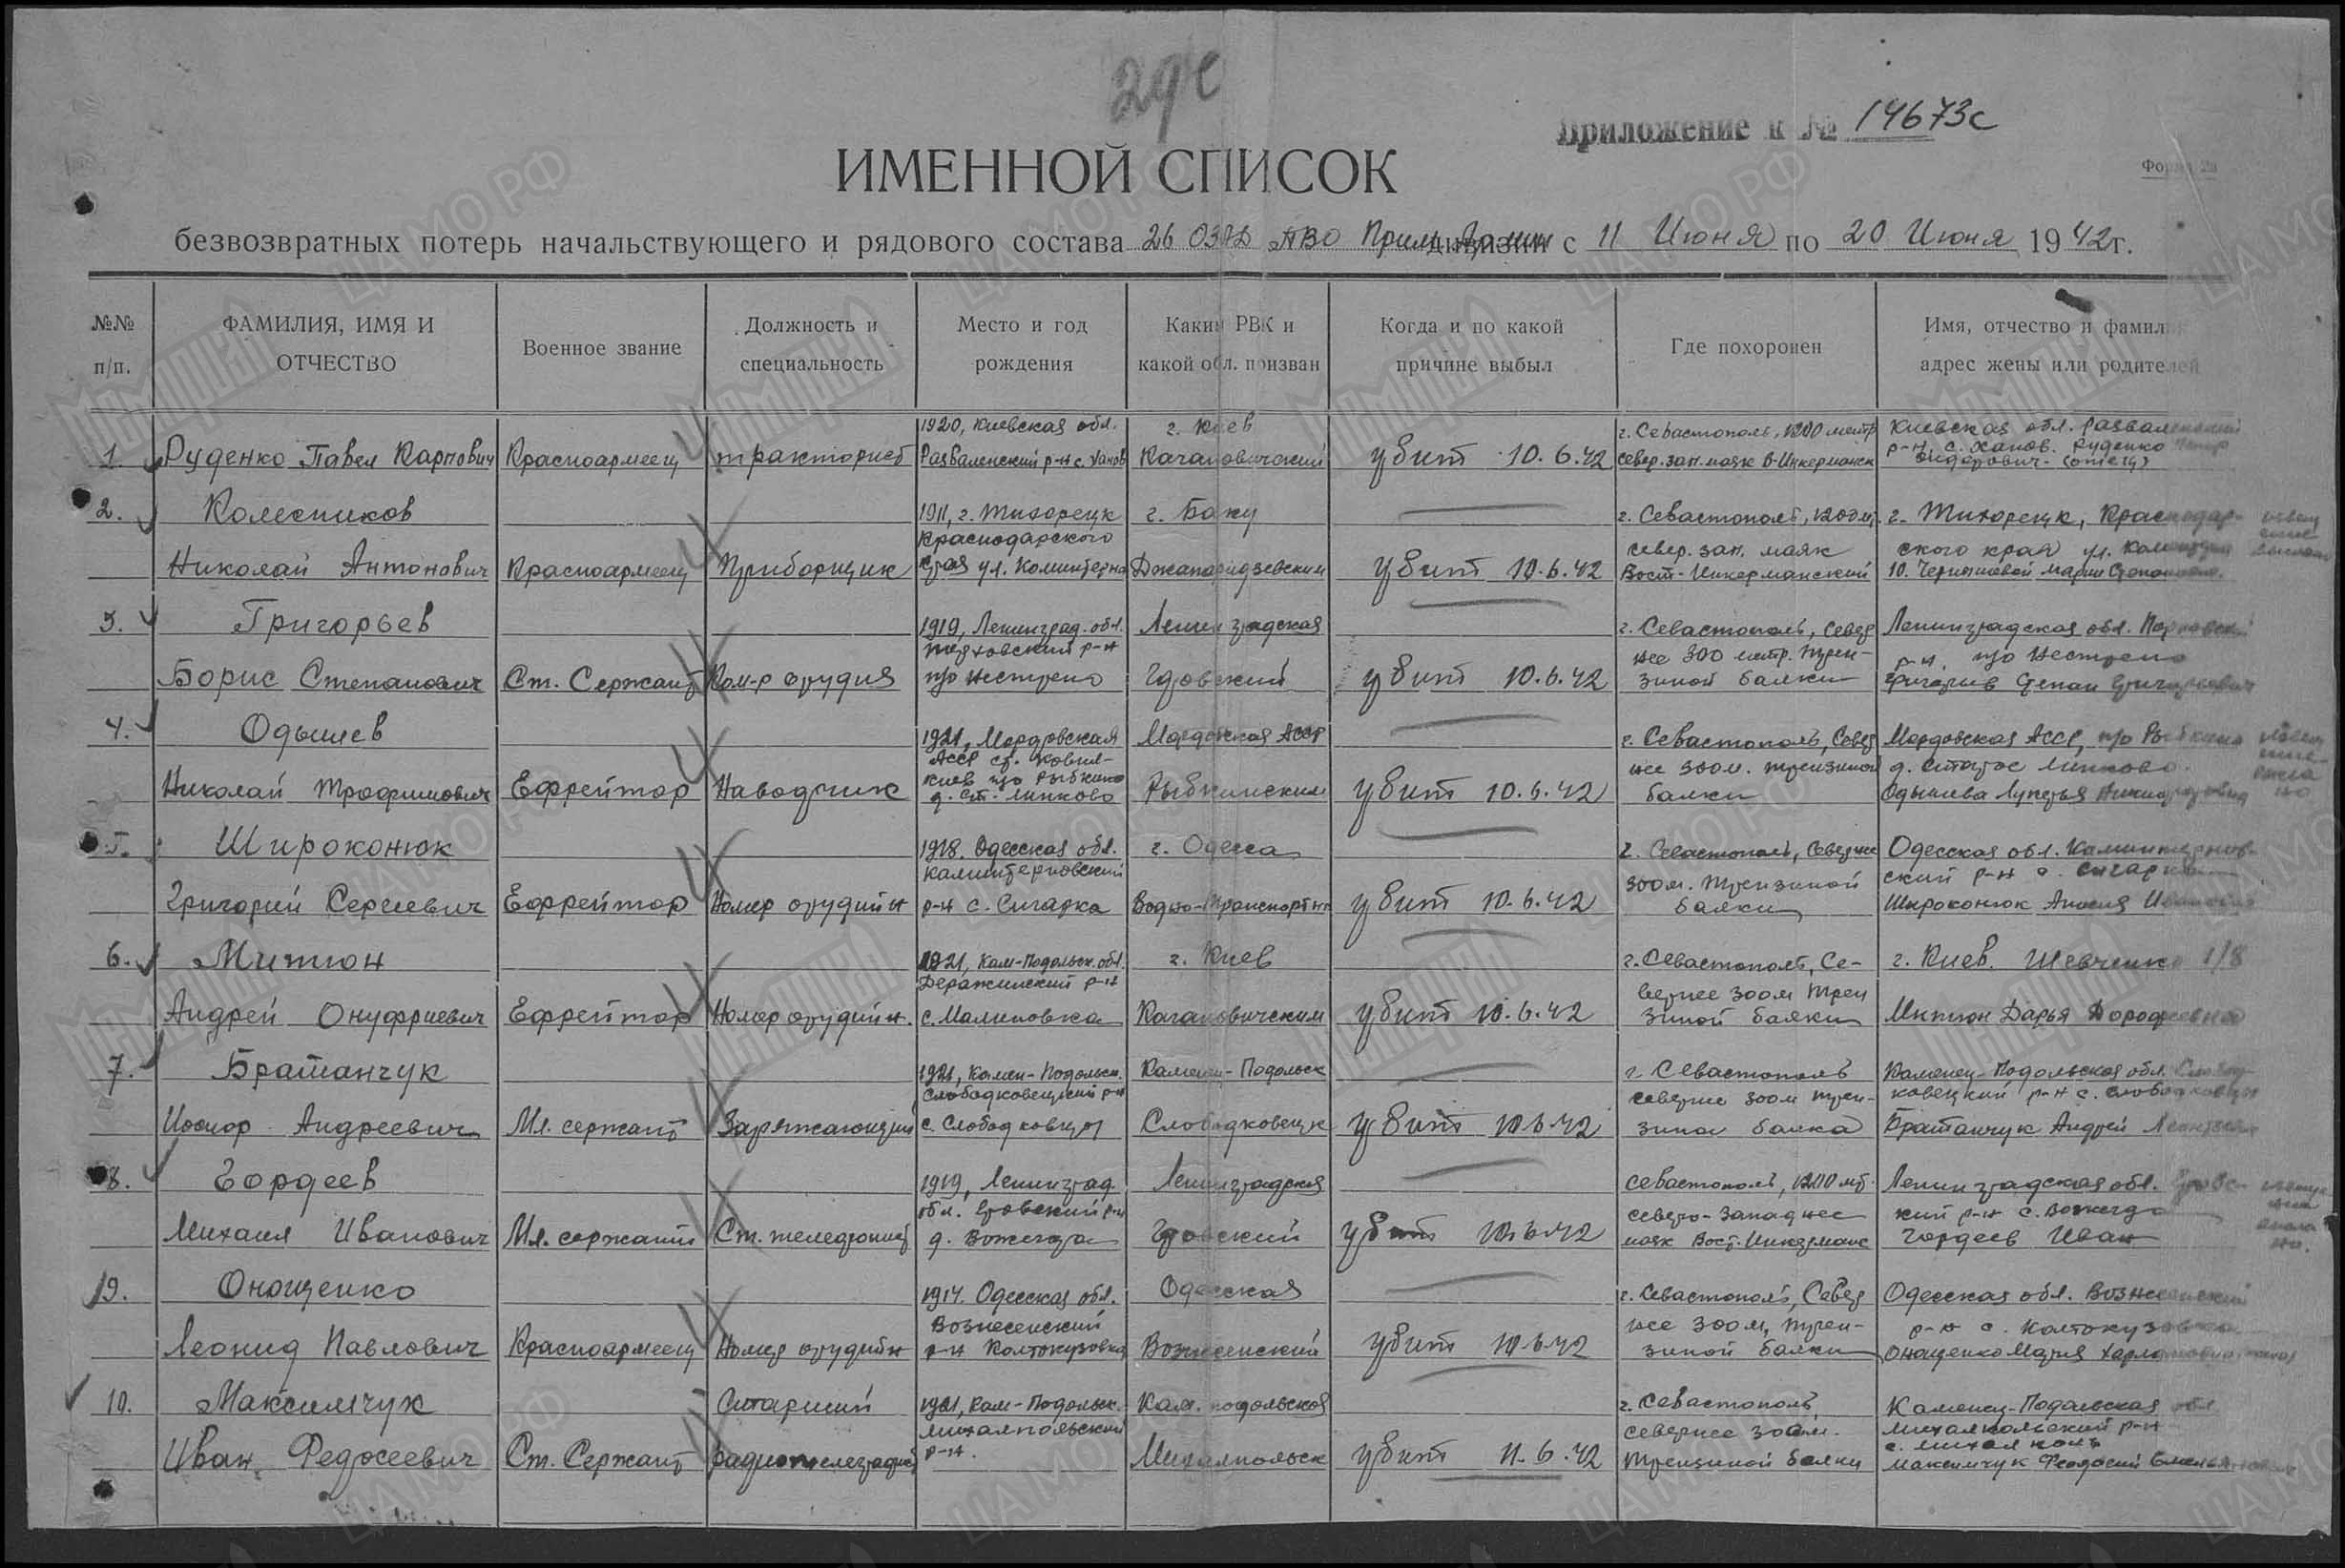 29с
Приложение к № 14673с
ИМЕННОЙ СПИСОК
Форма 2а
безвозвратных потерь начальствующего и рядового состава 26 ОЗАД ПВО Прим. дивизии с 11 Июня по 20 Июня 1942г.
№№ п/п.
ФАМИЛИЯ, ИМЯ И ОТЧЕСТВО
Военное звание
Должность и специальность
Место и год рождения
Каким РВК и какой обл. призван
Когда и по какой причине выбыл
Где похоронен
Имя, отчество и фамилия адрес жены или родителей
1. Руденко Павел Карпович
Красноармеец
тракторист
1920, Киевская обл.
р-н с. Ханов
г. Киев
Кагановичский
убит 10.6.42
г. Севастополь, 1200 метр
север. зап. маяк В-Инкерманск
Киевская обл.
р-н, с. Ханов. Руденко
(отец)
2. Колесников
Николай Антонович
Красноармеец
Приборщик
1911, г. Тихорецк
Краснодарского
края ул. Коминтерна
г. Баку
Джапаридзевским
убит 10.6.42
г. Севастополь, 1200 м,
север. зап. маяк
Вост-Инкерманский
г. Тихорецк, Краснодар-
ского края ул. Коминтерна
10. Чернышевой Марии
3. Григорьев
Борис Степанович
Ст. Сержант
Ком-р орудия
1919, Ленинград. обл.
р-н
п/о
Ленинградская
Гдовский
убит 10.6.42
г. Севастополь, север
нее 300 метр. Трен-
зиной балки
Ленинградская обл.
р-н, п/о
Григорьев Степан Григорьевич
4. Одышев
Николай Трофимович
Ефрейтор
Наводчик
1921, Мордовская
АССР ст. Ковыл-
кнев п/о Рыбкино
д. Ст. Линково
Мордовская АССР
Рыбкинским
убит 10.6.42
г. Севастополь, север
нее 300 м. трензиной
балки
Мордовская АССР, п/о Рыбкино
д. Старое Линково
Одышева
5. Широконюк
Григорий Сергеевич
Ефрейтор
Номер орудийн
1918. Одесская обл.
Каминтерновский
р-н с. Сичавка
г. Одесса
Водно-Транспортн
убит 10.6.42
г. Севастополь, севернее
300 м. Трензиной
балки
Одесская обл. Каминтернов-
ский р-н с. Сичавка
Широконюк
6. Митюн
Андрей Онуфриевич
Ефрейтор
Номер орудийн.
1921, Кам-Подольск. обл.
Деражнинский р-н
с. Малиновка
г. Киев
Кагановичским
убит 10.6.42
г. Севастополь, Се-
вернее 300 м Трен
зиной балки
г. Киев. Шевченко 1/8
Митюн Дарья Дорофеевна
7. Братанчук
Исидор Андреевич
Мл. сержант
Заряжающий
1921, Камен-Подольск.
Слободковецкий р-н
с. Слободковцы
Каменец-Подольск
Слободковецк
убит 10.6.42
г. Севастополь
севернее 300 м трен-
зина балка
Каменец-Подольская обл. Слобод-
ковецкий р-н с. Слободковцы
Братанчук Андрей
8. Гордеев
Михаил Иванович
Мл. сержант
Ст. телефонист
1919, Ленинград.
обл. Гдовский р-н
д. Вожегда
Ленинградская
Гдовский
убит 10.6.42
Севастополь, 1200 мт.
северо-западнее
маяк Вост. Инкерманс
Ленинградская обл. Гдовс-
кий р-н с. Вожегда
Гордеев Иван
9. Онащенко
Леонид Павлович
Красноармеец
Номер орудийн
1914. Одесская обл.
Вознесенский
р-н Колтокузовка
Одесская
Вознесенский
убит 10.6.42
г. Севастополь, север
нее 300 м, трен-
зиной балки
Одесская обл. Вознесенский
р-н с. Колтокузовка
Онащенко Мария
10. Максимчук
Иван Федосеевич
Ст. Сержант
Старший
радиотелеграфист
1921, Кам-Подольск.
Михалпольский
р-н.
Кам. подольская
Михалпольск
убит 11.6.42
г. Севастополь
севернее 300 м.
Трензиной балки
Каменец-Подольская обл
Михалпольский р-н
с. Михалполь
Максимчук Феодосий